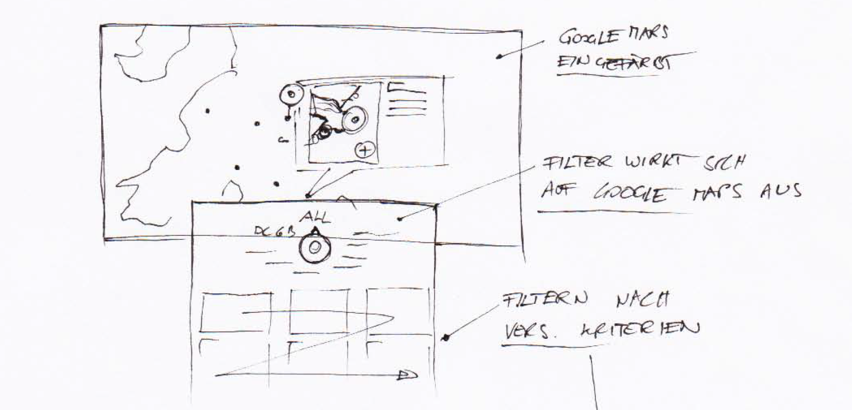 GOOGLE MAPS
EINGEFÄRBT
FILTER WIRKT SICH
AUF GOOGLE MAPS AUS
ALL
FILTERN NACH
VERS. KRITERIEN